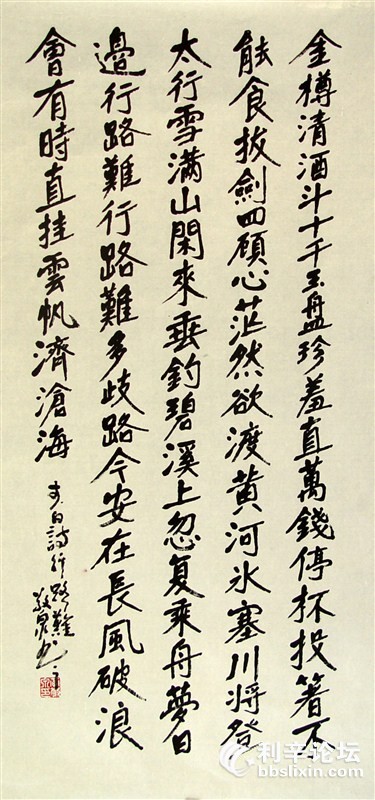 金樽清酒斗十千玉盘珍羞直萬錢停杯投箸不
能食拔劍四顧心茫然欲渡黄河冰塞川将登
太行雪滿山閑來垂釣碧溪上忽复乘舟夢日
邊行路難行路難多歧路今安在長風破浪
會有時直挂雲帆濟滄海
李白詩行路難
利辛论坛
bbslixin.com